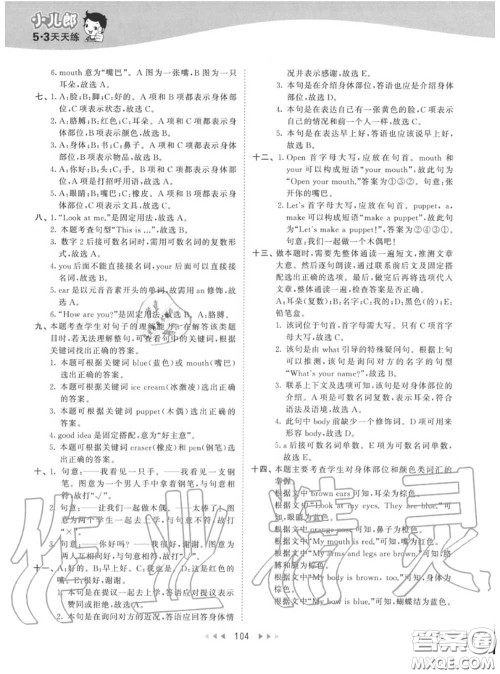 小儿郎
5·3天天练
6. mouth 意为“嘴巴”。A 图为一张嘴，B 图为一只耳朵，故选 A。
七、1. A：脸；B：脚；C：好的。A 项和 B 项都表示身体部位，C 项表示状态，故选 C。
2. A：胳膊；B：红色；C：身体。A 项和 C 项都表示身体部位，B 项表示颜色，故选 B。
3. A：身体；B：书；C：鼻子。A 项和 C 项都表示身体部位，故选 B。
4. A：你好；B：头；C：手。A 项是打招呼用语，故选 A。
5. A：眼睛；B：嘴巴；C：橡皮。A 项和 B 项都表示身体部位，故选 C。
八、1. “Look at me.”是固定用法，故选 A。
2. 本题考查句型“This is ...”，故选 A。
3. 数字 2 后接可数名词时，需用可数名词的复数形式，故选 A。
4. you 后面不能直接接名词，your 后面可以直接接名词，故选 B。
5. ear 是以元音音素开头的单词，故需用 an 修饰，故选 A。
6. “How are you?”是固定用法，故选 A。
九、本题考查学生对句子的理解能力，在解答该类题目时，若无法理解整句，可查看句中的关键词，根据关键词找出正确的答案。
1. 本题可根据关键词 blue（蓝色）或 mouth（嘴巴）选出正确的答案。
2. 本题可根据关键词 ice cream（冰激凌）选出正确的答案。
3. 本题可根据关键词 puppet（木偶）选出正确的答案。
4. good idea 是固定搭配，意为“好主意”。
5. 本题可根据关键词 eraser（橡皮）和 pen（钢笔）选出正确的答案。
十、1. 句意：——我看见一只手。——我看见一支钢笔。
故打“√”。
2.
故打“×”。
3. 句意：——你好吗？——我很好，谢谢。
十一、
谢谢。
1. 本句是在提议一起去上学，答语应该表示赞同或拒绝，故选
2. 本句是在询问身体情况，答语应回答身体情
况并表示感谢，故选
3. 本句是在介绍身体部位，答语也应是介绍身体部位，故选 A。
4. 本句是在表达自己有一张黄色的脸，C 项表达自己的情况和前一个人一样，故选 C。
5. 本句是在表达早上好，答语也应该说早上好，故选 B。
十二、1. Open 首字母大写，应放在句首。mouth 和 your 可以构成短语“your mouth”，故此句为“Open your mouth.”，答案为①③②。句意：张开你的嘴巴。
2. Let's 首字母大写，应放在句首，puppet，a，make 可以构成短语“make a puppet”，故此句为“Let's make a puppet!”，答案为②④③①。句意：我们一起做一个木偶吧！
十三、做本题时，需要先整体通读一遍短文，推测文章大意。然后根据通过联系前后文及固定搭配选出正确的选项。做完题后再将选项代入文章，整体通读，确认答案。
A：耳朵（复数）；B：名字；C：我的；D：黑色（的）；E：铅笔盒。
1. 该词位于句首，首字母需大写，只有 C 项首字母大写，故选 C。
2. 该句是由 what 引导的特殊疑问句。根据上一句可以推测，该句是询问对方的名字的句型“What's your name?”，故选 B。
3. 联系上下文及选项可知，该句是对身体部位的介绍。B、D、E 不符合题意。A 表示耳朵，符合语法及语境，故选 A。
4. 此句中 body 前缺少一个修饰词。D 项可以表示此含义，故选 D。
5. a 后接可数名词单数。E 项为可数名词单数，故选 E。
十四、本题主要考查学生对身体部位和颜色类词汇的掌握。
根据文中 brown ears 可知，耳朵为棕色。
根据文中“Look at my eyes. They are blue.”可知，眼睛为蓝色。
根据文中 orange nose 可知，鼻子为橙色。
根据文中“My mouth is red.”可知，嘴为红色。
根据文中“My arms and legs are brown.”可知，胳膊和腿为棕色。
根据文中“My body is brown, too.”可知，身体为棕色。
根据文中“My bow is blue.”可知，蝴蝶结为蓝色。
104